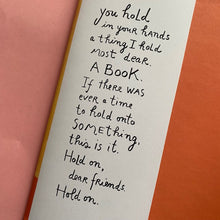 you hold
in your hands
a thing I hold
most dear.
A BOOK.
If there was
ever a time
to hold onto
SOMETHING,
this is it.
Hold on,
dear friends.
Hold on.